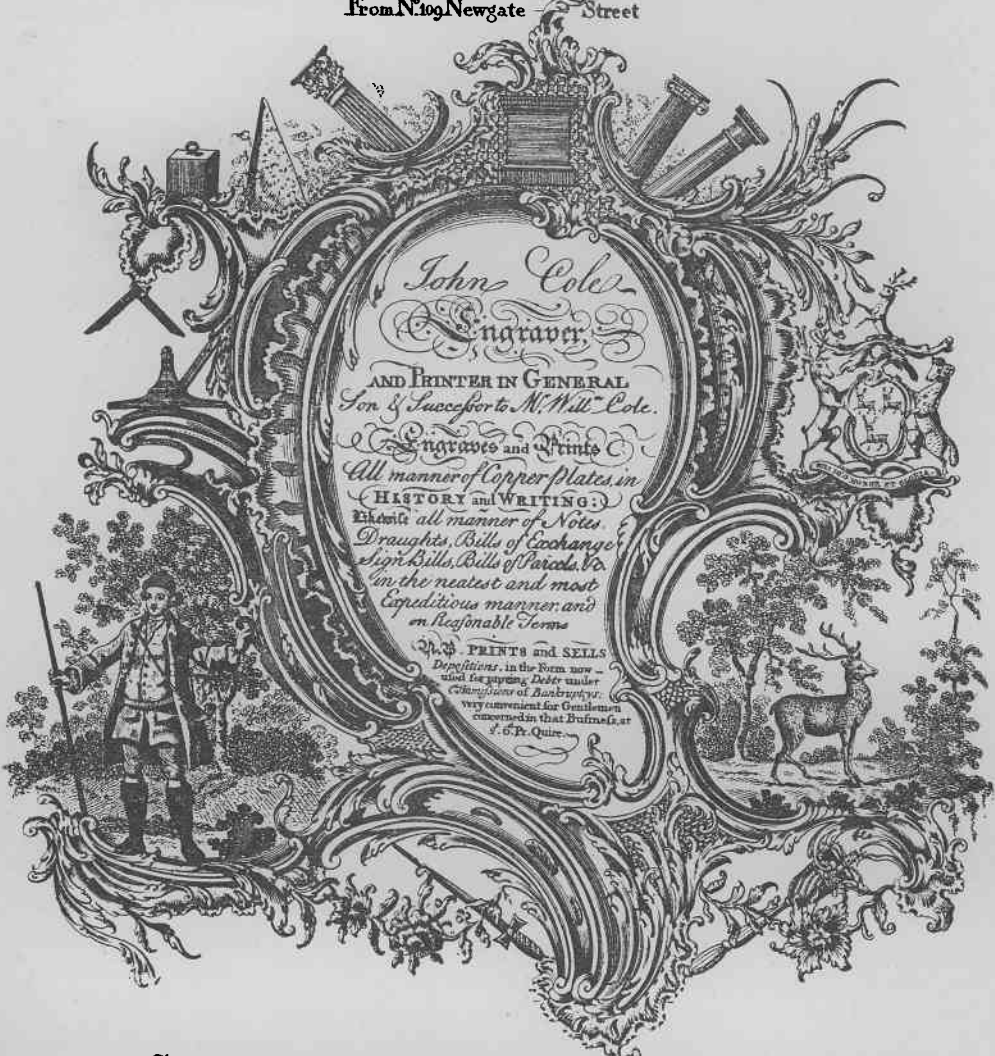 From No. 109 Newgate Street
John Cole
Engraver,
AND PRINTER IN GENERAL
Son & Succeſsor to Mr. Willm. Cole.
Engraves and Prints
All manner of Copper Plates, in
HISTORY and WRITING;
Likewise all manner of Notes,
Draughts, Bills of Exchange
Sign Bills, Bills of Parcels, &c.
in the neatest and most
Expeditious manner, and
on Reaſonable Terms
N.B. PRINTS and SELLS
Depoſitions, in the Form now
used for proving Debts under
Commiſsions of Bankruptcy:
very convenient for Gentlemen
concerned in that Buſineſs, at
Pr. Quire.